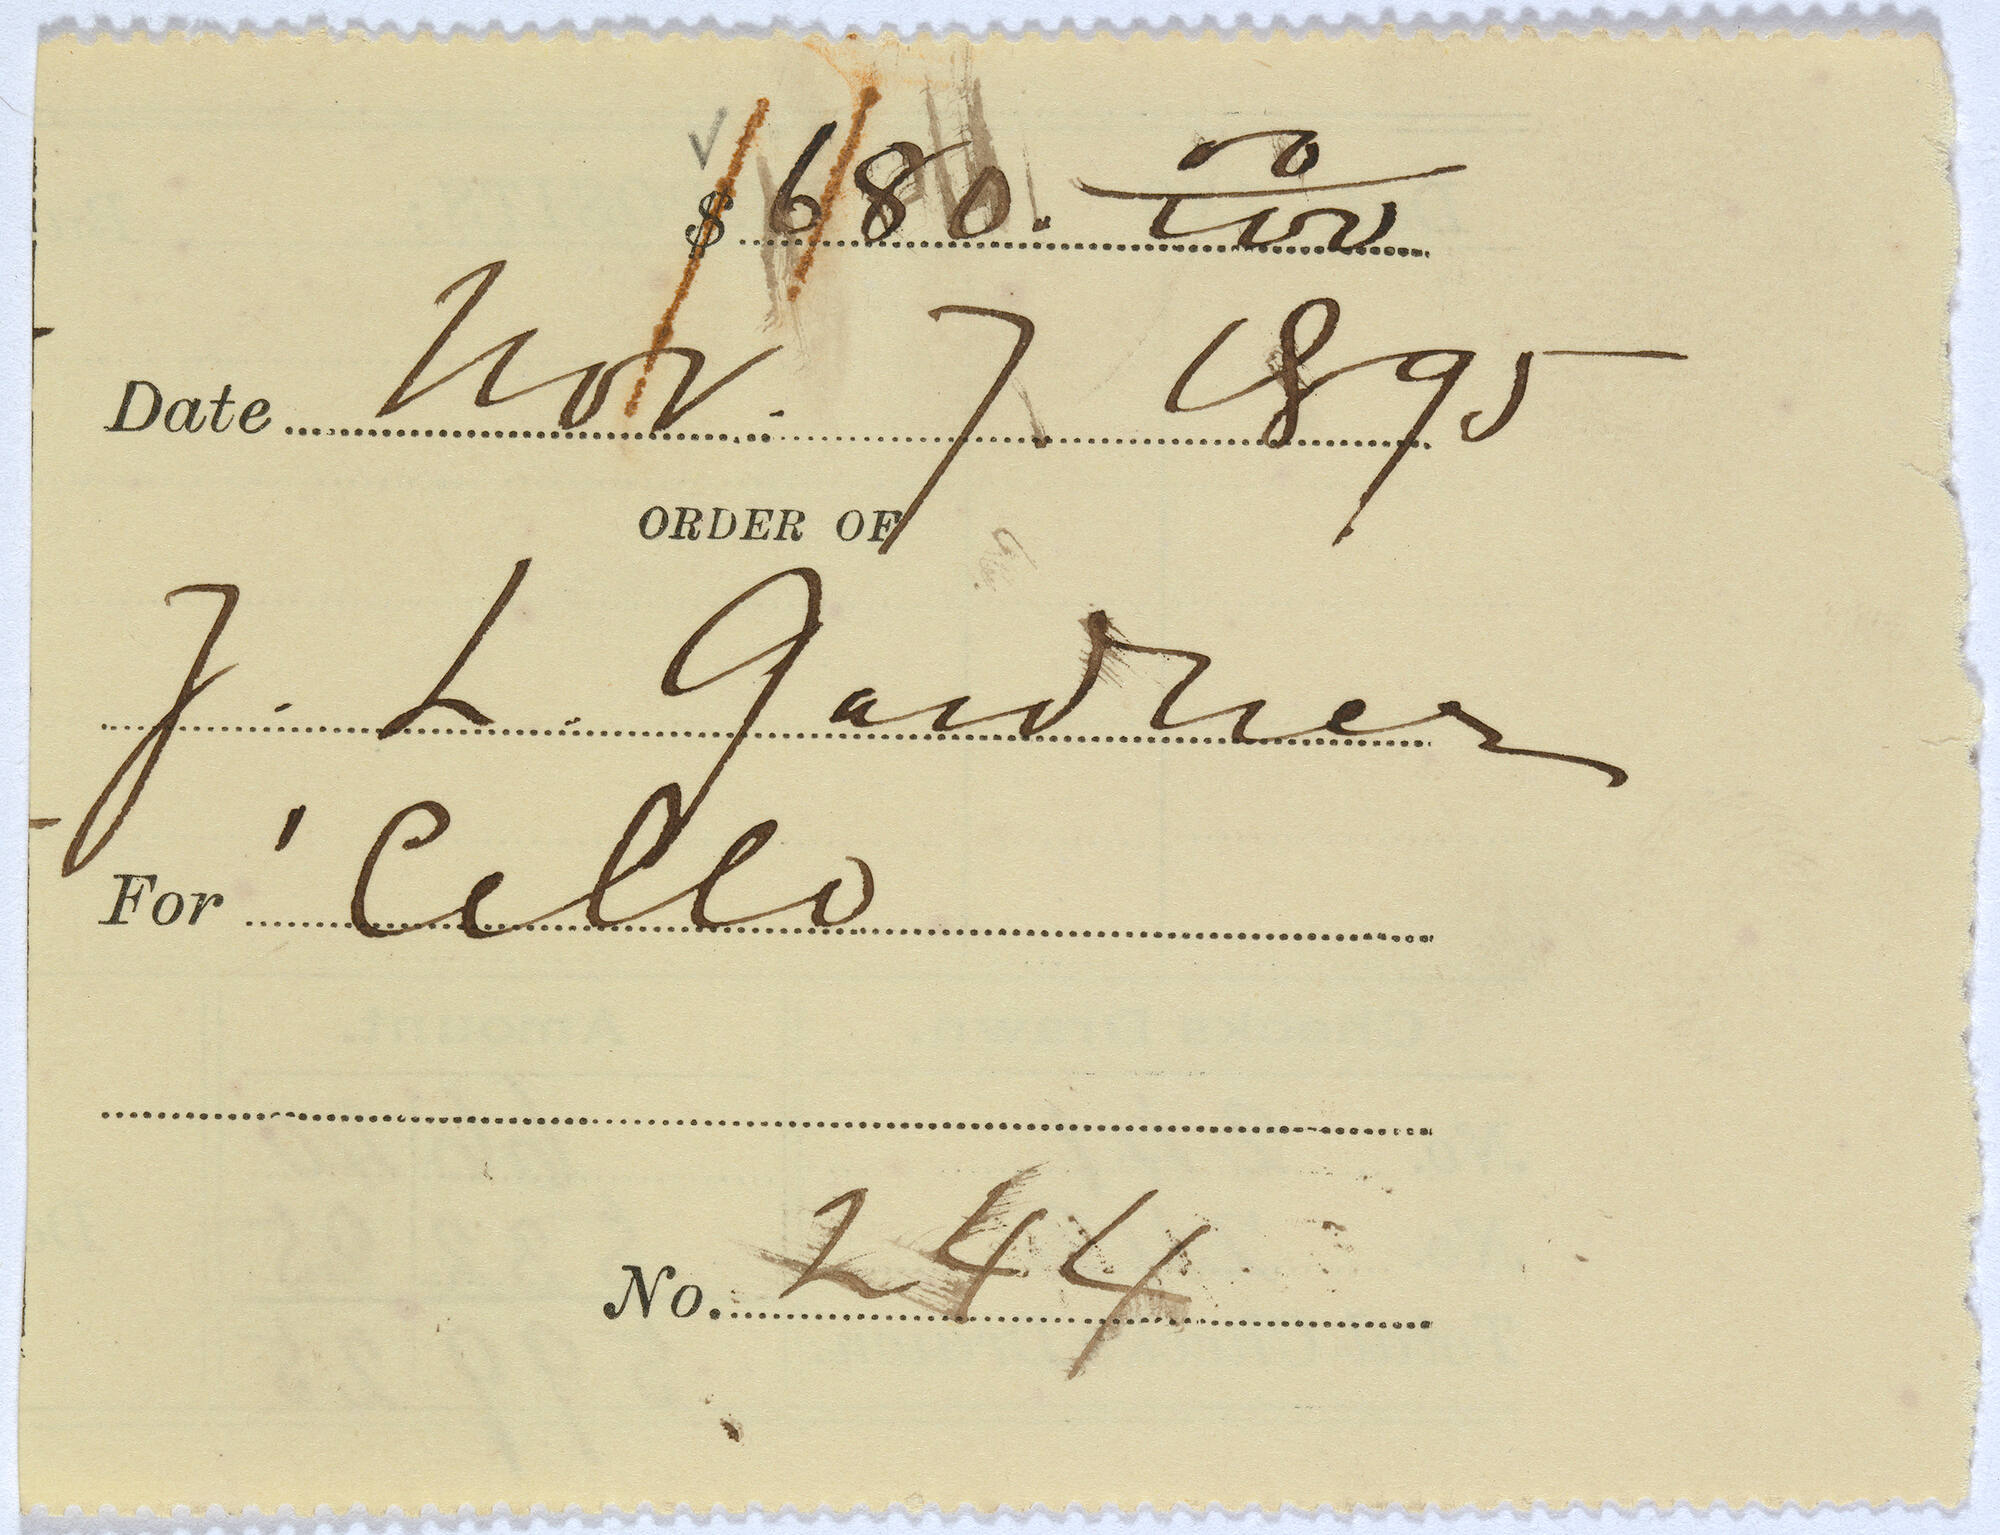 $ 680. 00/100
Date Nov. 7. 1895
ORDER OF
J. L. Gardner
For 'Cello
No. 244